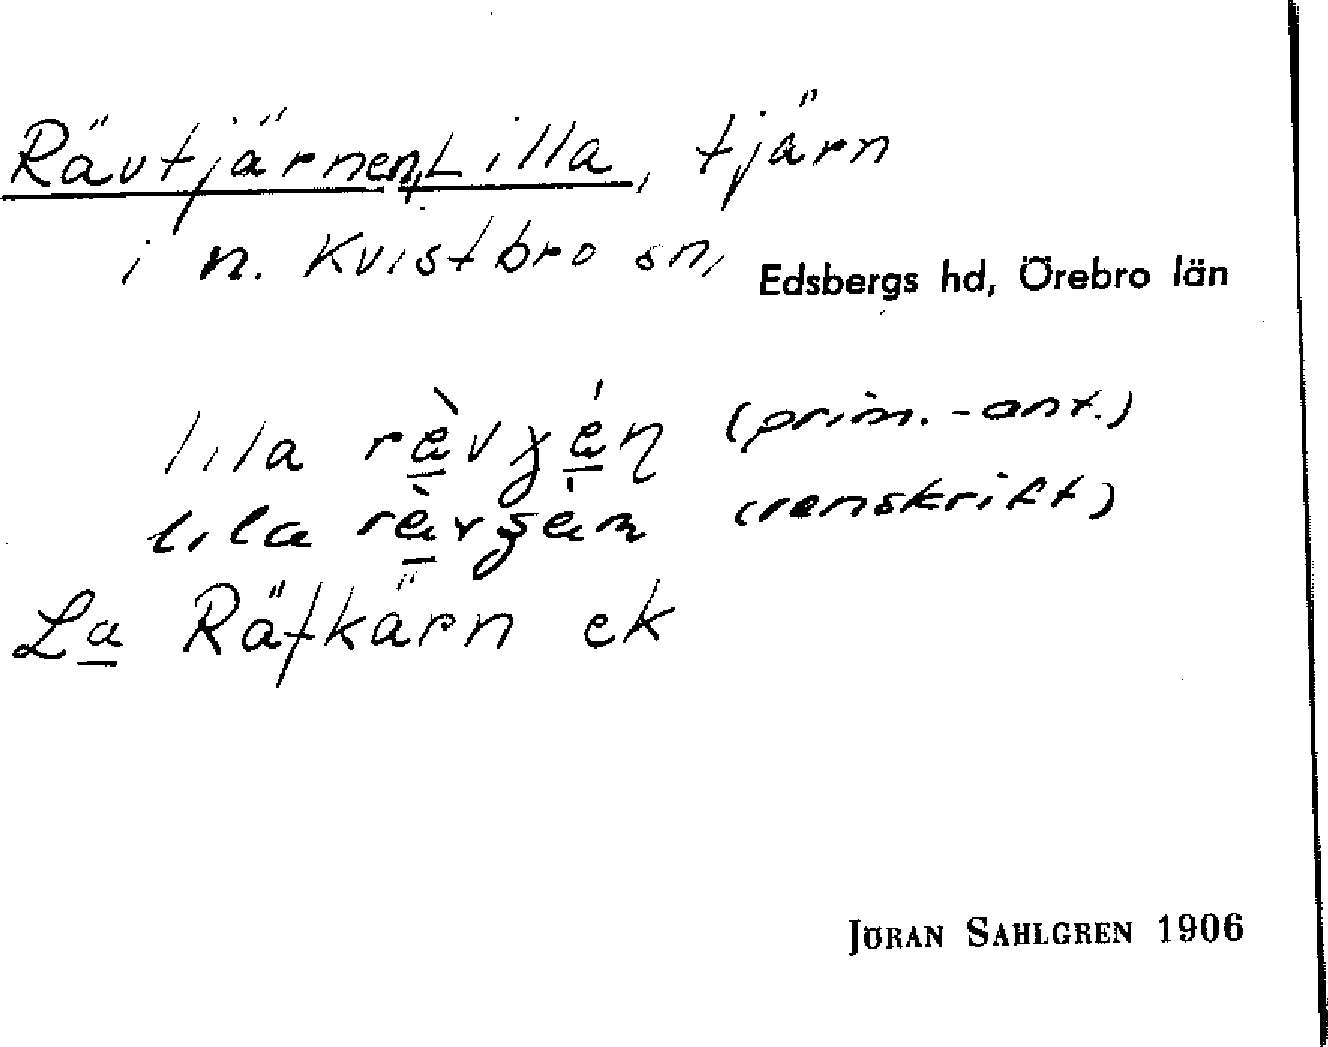 Rävtjärnen, Lilla, tjärn
i n. Kvistbro sn, Edsbergs hd, Örebro län
lila (prim.-ant.)
lila (renskrift)
La Räfkärn ek
JÖRAN SAHLGREN 1906